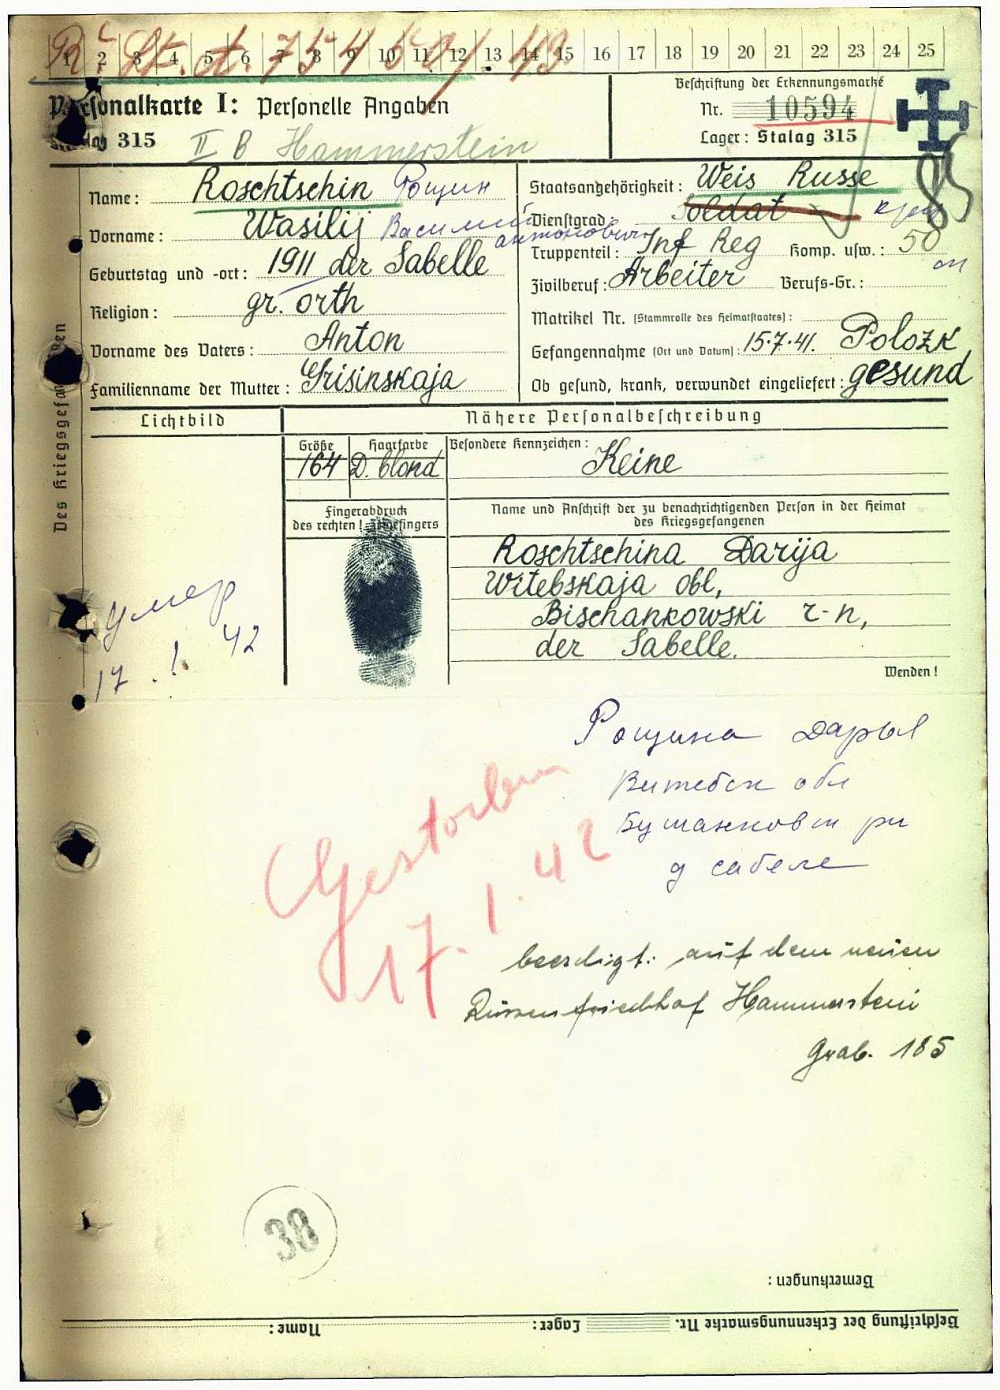 1 2 3 4 5 6 7 8 9 10 11 12 13 14 15 16 17 18 19 20 21 22 23 24 25
Personalkarte I: Personelle Angaben
Stalag 315
II B Hammerstein
Beschriftung der Erkennungsmarke
Nr. 10594
Lager: Stalag 315
85
Name: Roschtschin Рощин
Vorname: Wasilij Василий антонович
Geburtstag und -ort: 1911 der Sabelle
Religion: gr. orth
Vorname des Vaters: Anton
Familienname der Mutter: Grisinskaja
Staatsangehörigkeit: Weis Russe
Dienstgrad: Soldat
Truppenteil: Inf Reg Komp. usw.: 50
Zivilberuf: Arbeiter Berufs-Gr.:
Matrikel Nr. (Stammrolle des Heimatstaates):
Gefangennahme (Ort und Datum): 15.7.41. Polozk
Ob gesund, krank, verwundet eingeliefert: gesund
Des Kriegsgefangenen
Lichtbild
Nähere Personalbeschreibung
Größe Haarfarbe Besondere Kennzeichen:
164 D. blond Keine
Fingerabdruck
des rechten Zeigefingers
Name und Anschrift der zu benachrichtigenden Person in der Heimat
des Kriegsgefangenen
Roschtschina Darija
Witebskaja obl,
Bischankowski r-n,
der Sabelle.
Wenden!
умер
17.1.42
Рощина Дарья
Витебск обл
Бушанковск рн
д сабеле
Gestorben
17.1.42
beerdigt: auf dem neuen
Russenfriedhof Hammerstein
Grab. 185
38
Bemerkungen:
Beschriftung der Erkennungsmarke Nr. Lager: Name: